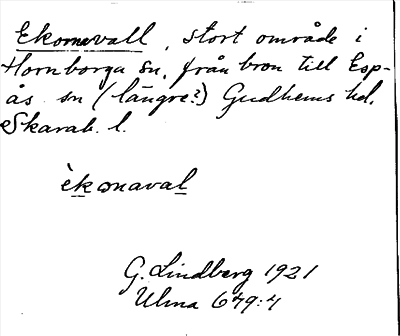 Ekornavall, stort område i
Hornborga sn, från bron till Esp-
ås sn (längre?) Gudhems hd.
Skarab. l.
èkɷnaval
G. Lindberg 1921
Ulma 679:4